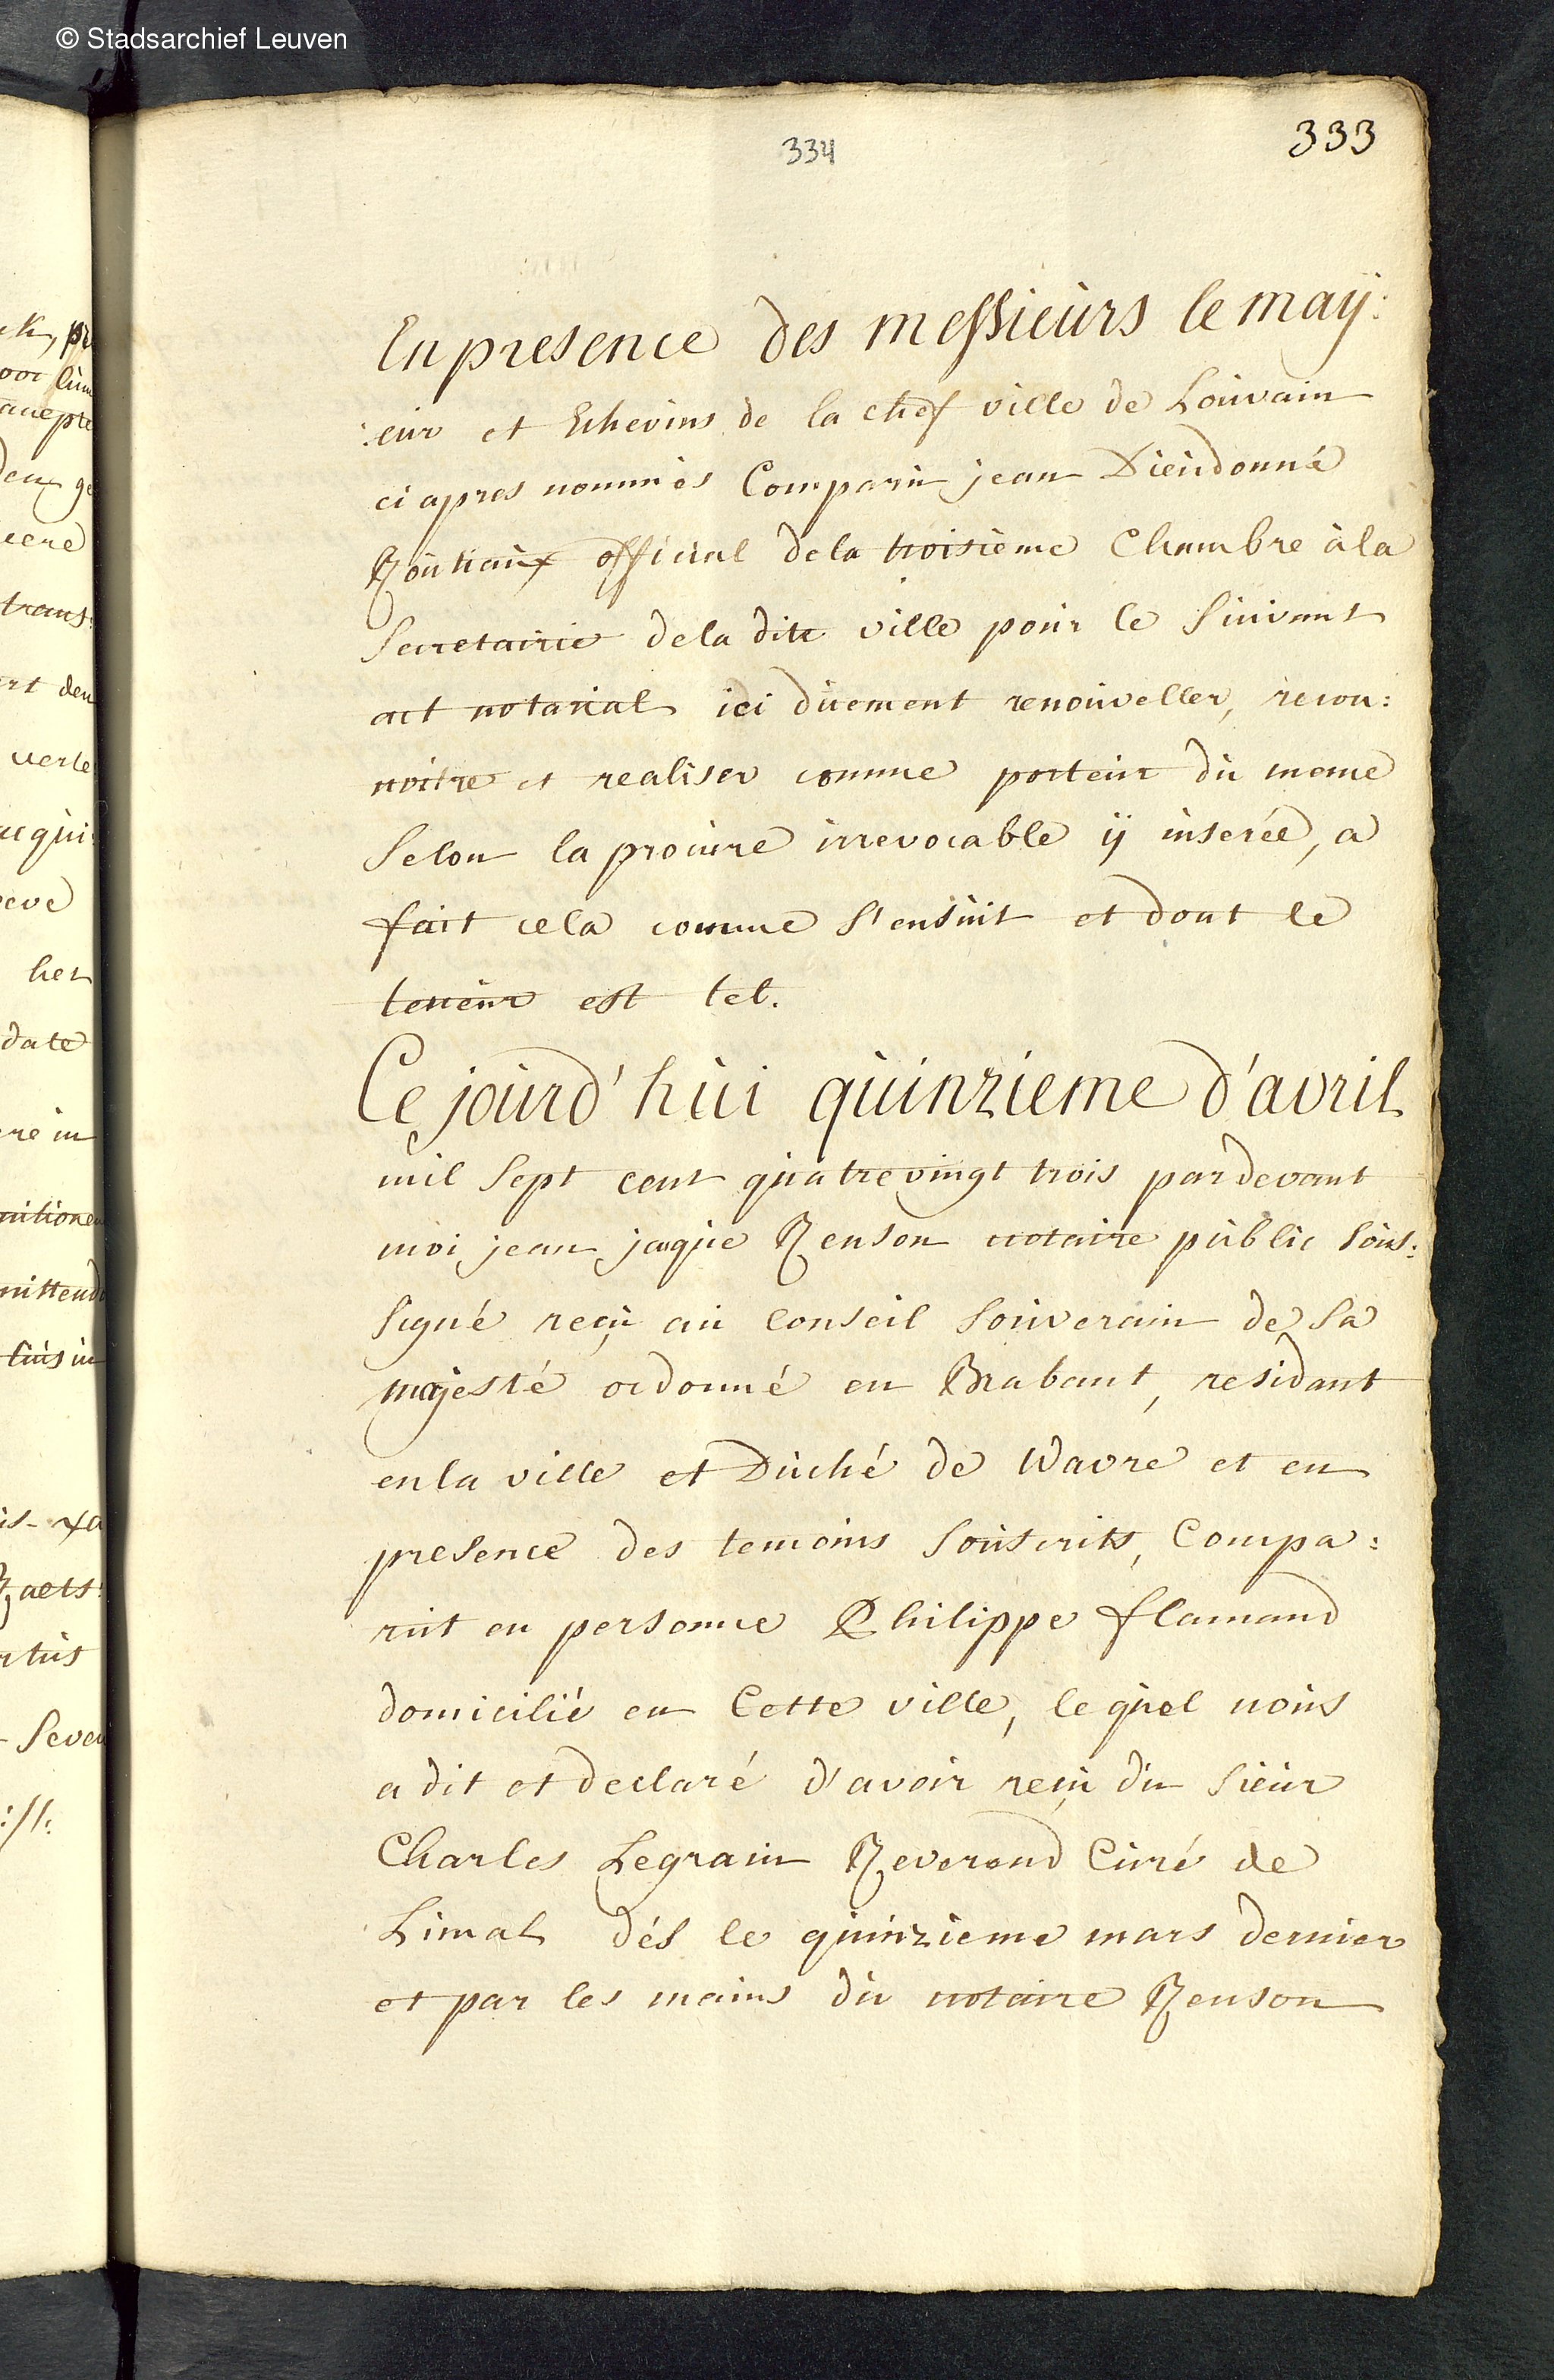 © Stadsarchief Leuven
334
333
En presence des messieurs le maÿ:
:eur et Echevins de la chef ville de Louvain
ci apres nommés Comparu jean Dieudonné
Routiaux official de la troisième Chambre à la
Secretairie de la dite ville pour le suivant
act notarial ici duement renouveller, recon:
noitre et realiser comme porteur du meme
selon la procure irrevocable ÿ inserée, a
fait cela comme s'ensuit et dont le
teneur est tel.
Ce jourd'hui quinzieme d'avril
mil sept cent quatrevingt trois pardevant
moi jean jaque Renson notaire public sous:
signé reçu au Conseil souverain de sa
majesté ordonné en Brabant, residant
en la ville et Duché de Wavre et en
presence des temoins souscrits, Compa:
rut en personne Philippe flamand
domicilié en Cette ville, le quel nous
a dit et declaré d'avoir reçu du sieur
Charles Legrain Reverend Curé de
Limal dés le quinzieme mars dernier
et par les mains du notaire Renson